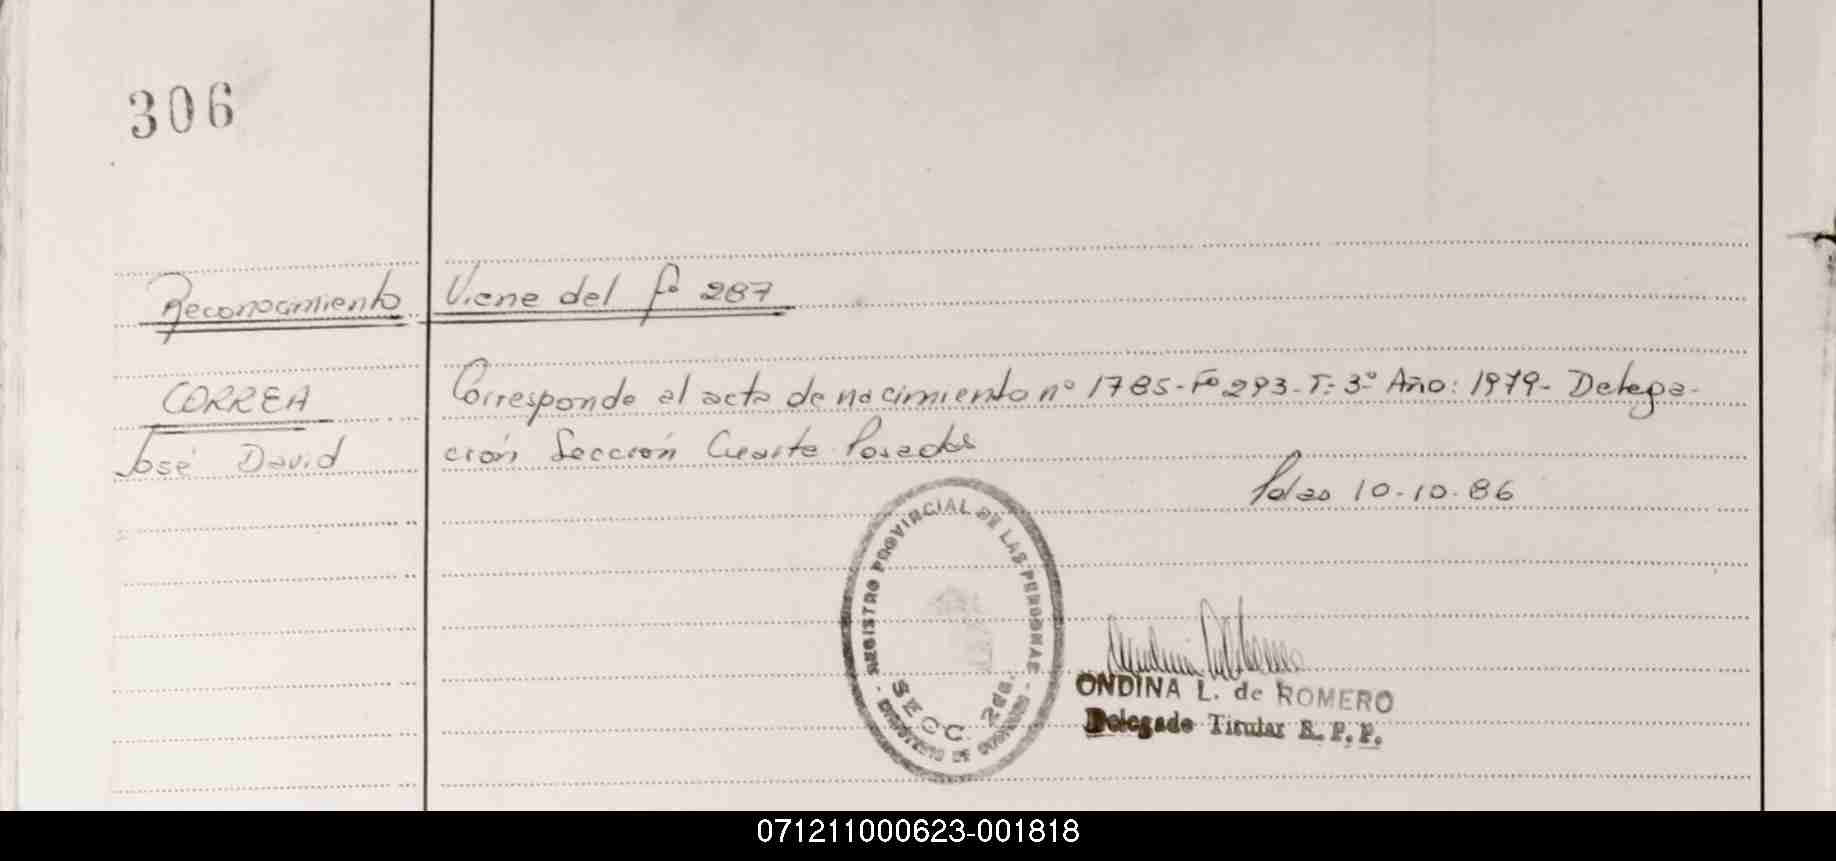 306
Reconocimiento Viene del Fº 287
CORREA Corresponde al acta de nacimiento nº 1785-Fº 293-T: 3º Año: 1979- Delega-
José David ción Sección Cuarta Posadas
Pdas 10-10-86
REGISTRO PROVINCIAL DE LAS PERSONAS
SECC. 2da.
MINISTERIO DE GOBIERNO
ONDINA L. de ROMERO
Delegado Titular R. P. P.
071211000623-001818